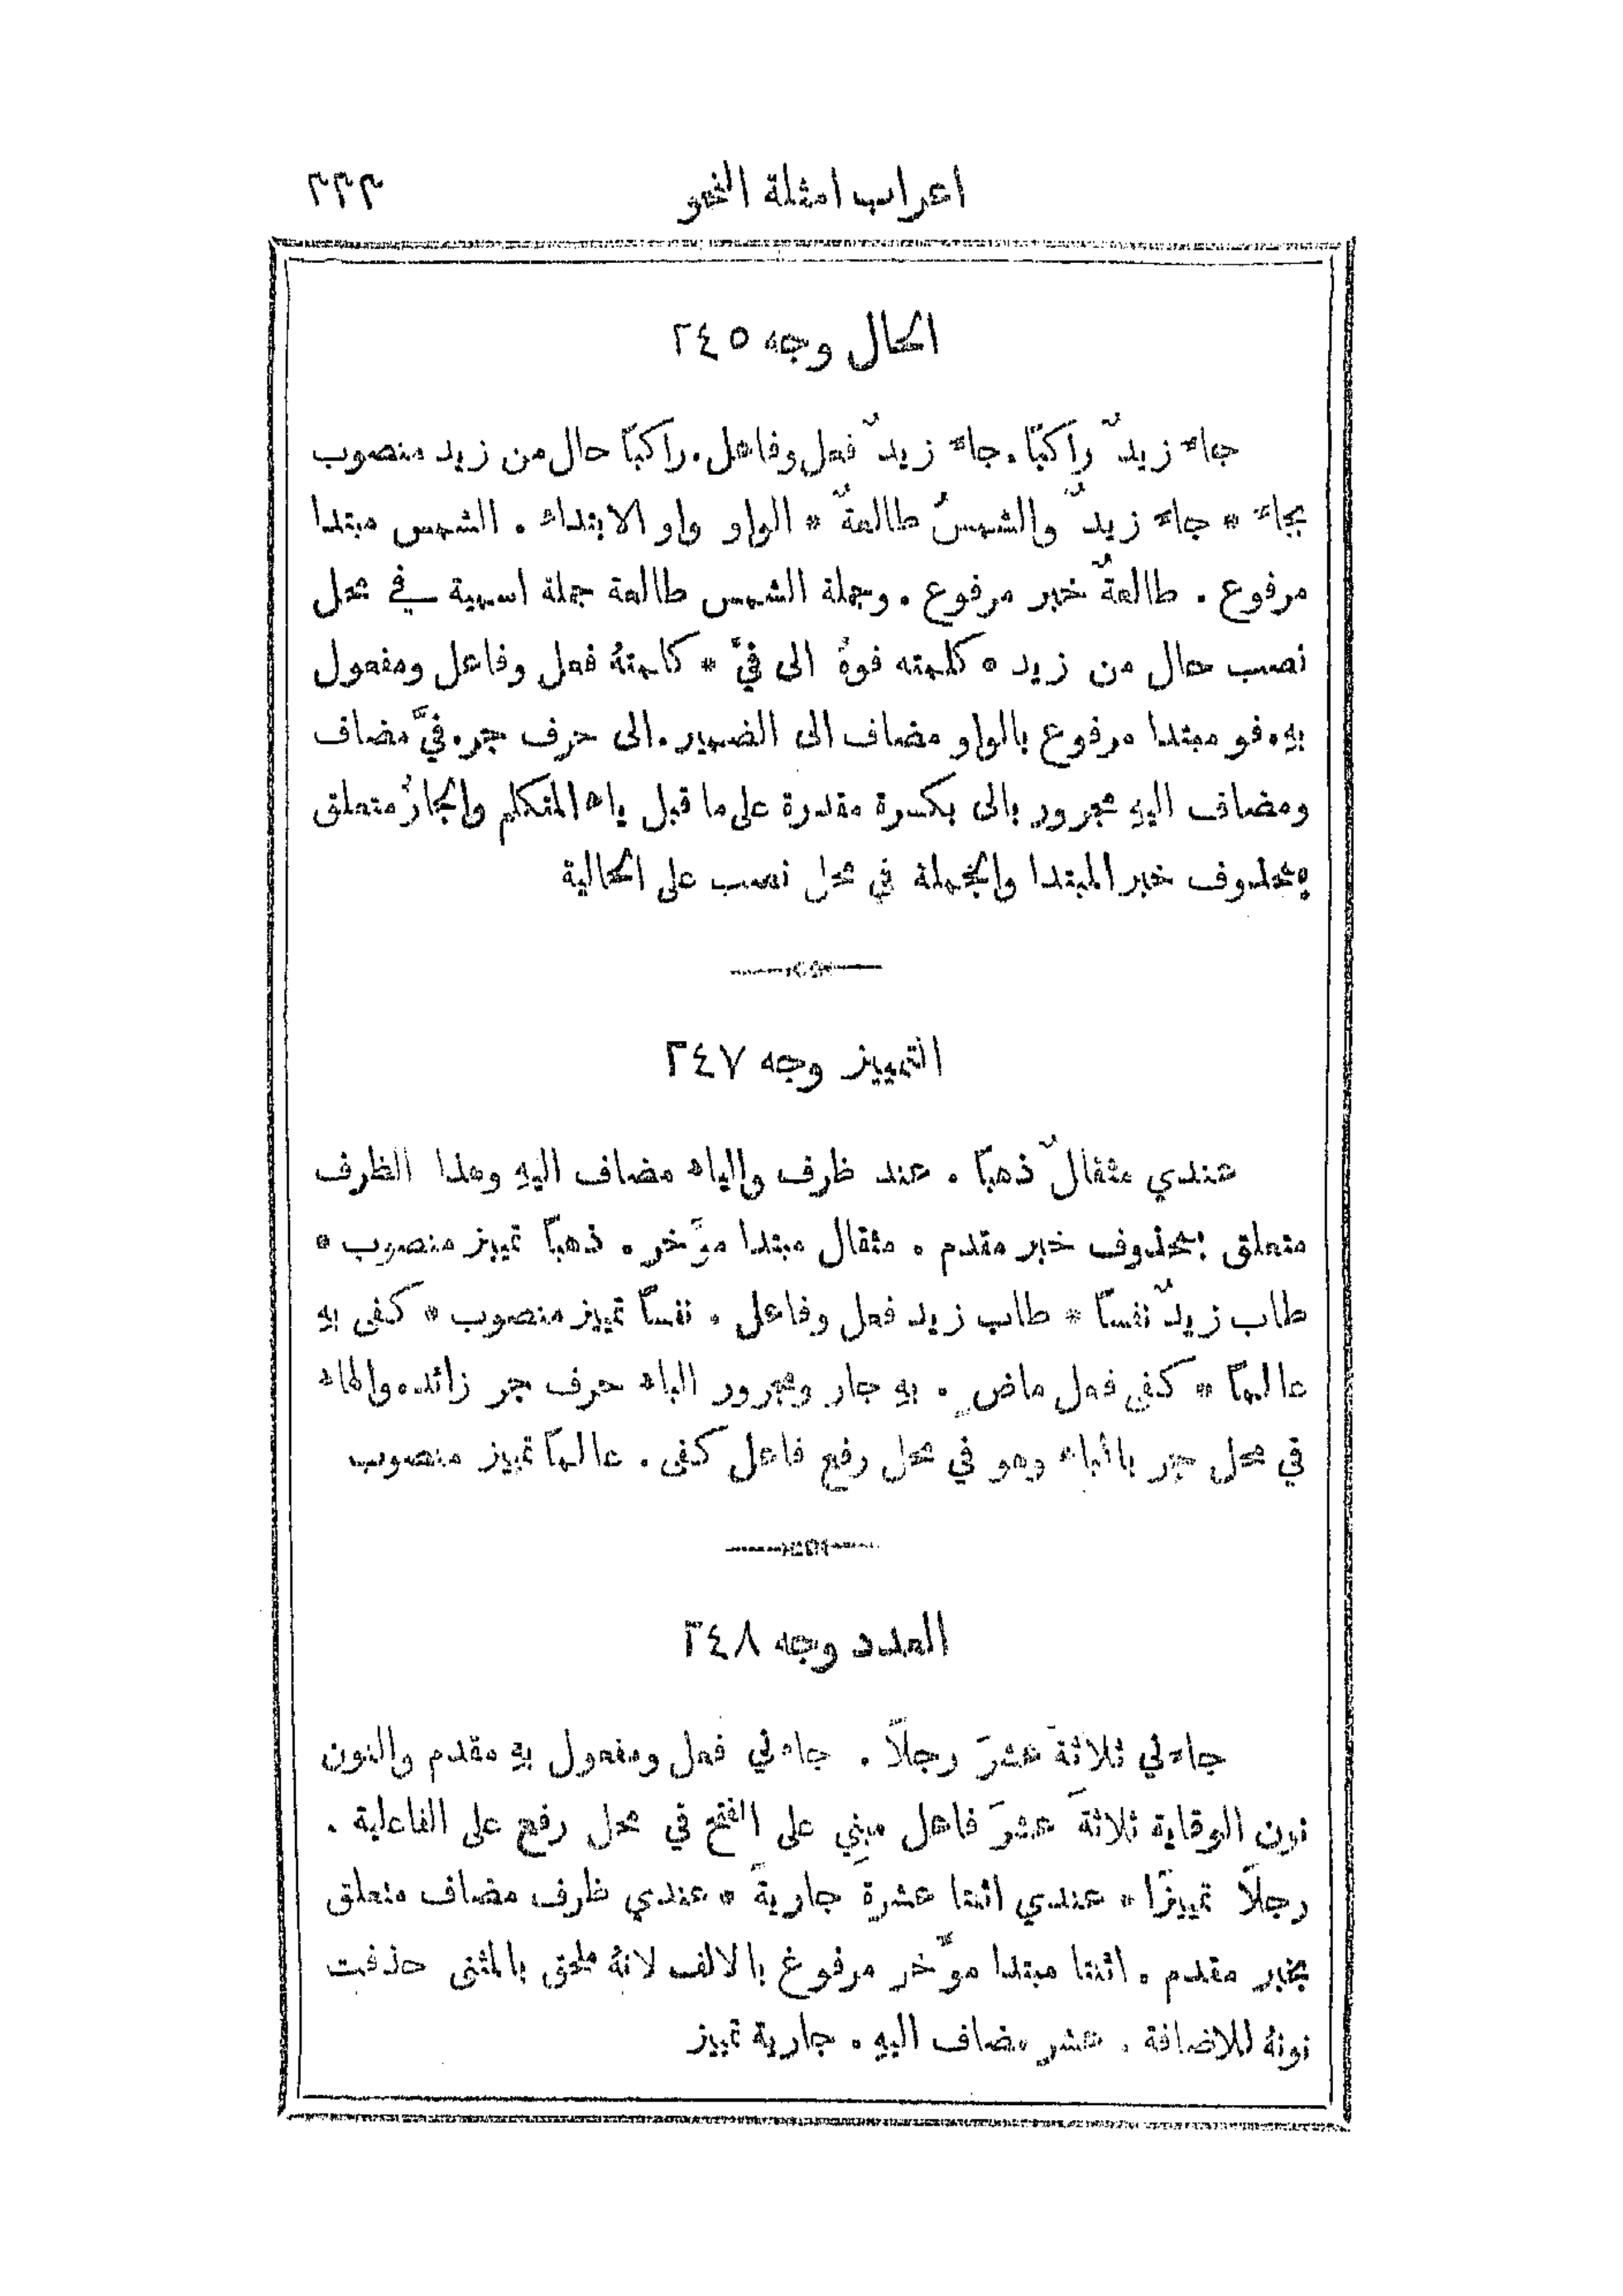 اعراب امثلة النحو ٣٣٣
الحال وجه ٢٤٥
جاءَ زيدٌ راكبًا . جاءَ زيدٌ فعل وفاعل . راكبًا حال من زيد منصوب
بجاءَ * جاءَ زيدٌ والشمسُ طالعةٌ * الواو واو الابتداء . الشمس مبتدا
مرفوع . طالعةٌ خبر مرفوع . وجملة الشمس طالعة جملة اسمية في محل
نصب حال من زيد * كلمته فوهُ الى فيَّ * كلمتهُ فعل وفاعل ومفعول
بهِ . فو مبتدا مرفوع بالواو مضاف الى الضمير . الى حرف جر . فيَّ مضاف
ومضاف اليهِ مجرور بالى بكسرة مقدرة على ما قبل ياء المتكلم والجارُّ متعلق
بمحذوف خبر المبتدا والجملة في محل نصب على الحالية
التمييز وجه ٢٤٧
عندي مثقالٌ ذهبًا . عند ظرف والياء مضاف اليهِ وهذا الظرف
متعلق بمحذوف خبر مقدم . مثقال مبتدا موَّخر . ذهبًا تمييز منصوب *
طاب زيدٌ نفسًا * طاب زيد فعل وفاعل . نفسًا تمييز منصوب * كفى بهِ
عالمًا * كفى فعل ماضٍ . بهِ جار ومجرور الباء حرف جر زائد . والهاء
في محل جر بالباء وهو في محل رفع فاعل كفى . عالمًا تمييز منصوب
العدد وجه ٢٤٨
جاءَني ثلاثةَ عشرَ رجلًا . جاءني فعل ومفعول بهِ مقدم والنون
نون الوقاية ثلاثةَ عشرَ فاعل مبني على الفتح في محل رفع على الفاعلية .
رجلًا تمييزًا * عندي اثنتا عشرة جاريةً * عندي ظرف مضاف متعلق
بخبر مقدم . اثنتا مبتدا موَّخر مرفوع بالالف لانهُ ملحق بالمثنى حذفت
نونهُ للاضافة . عشر مضاف اليهِ . جارية تمييز